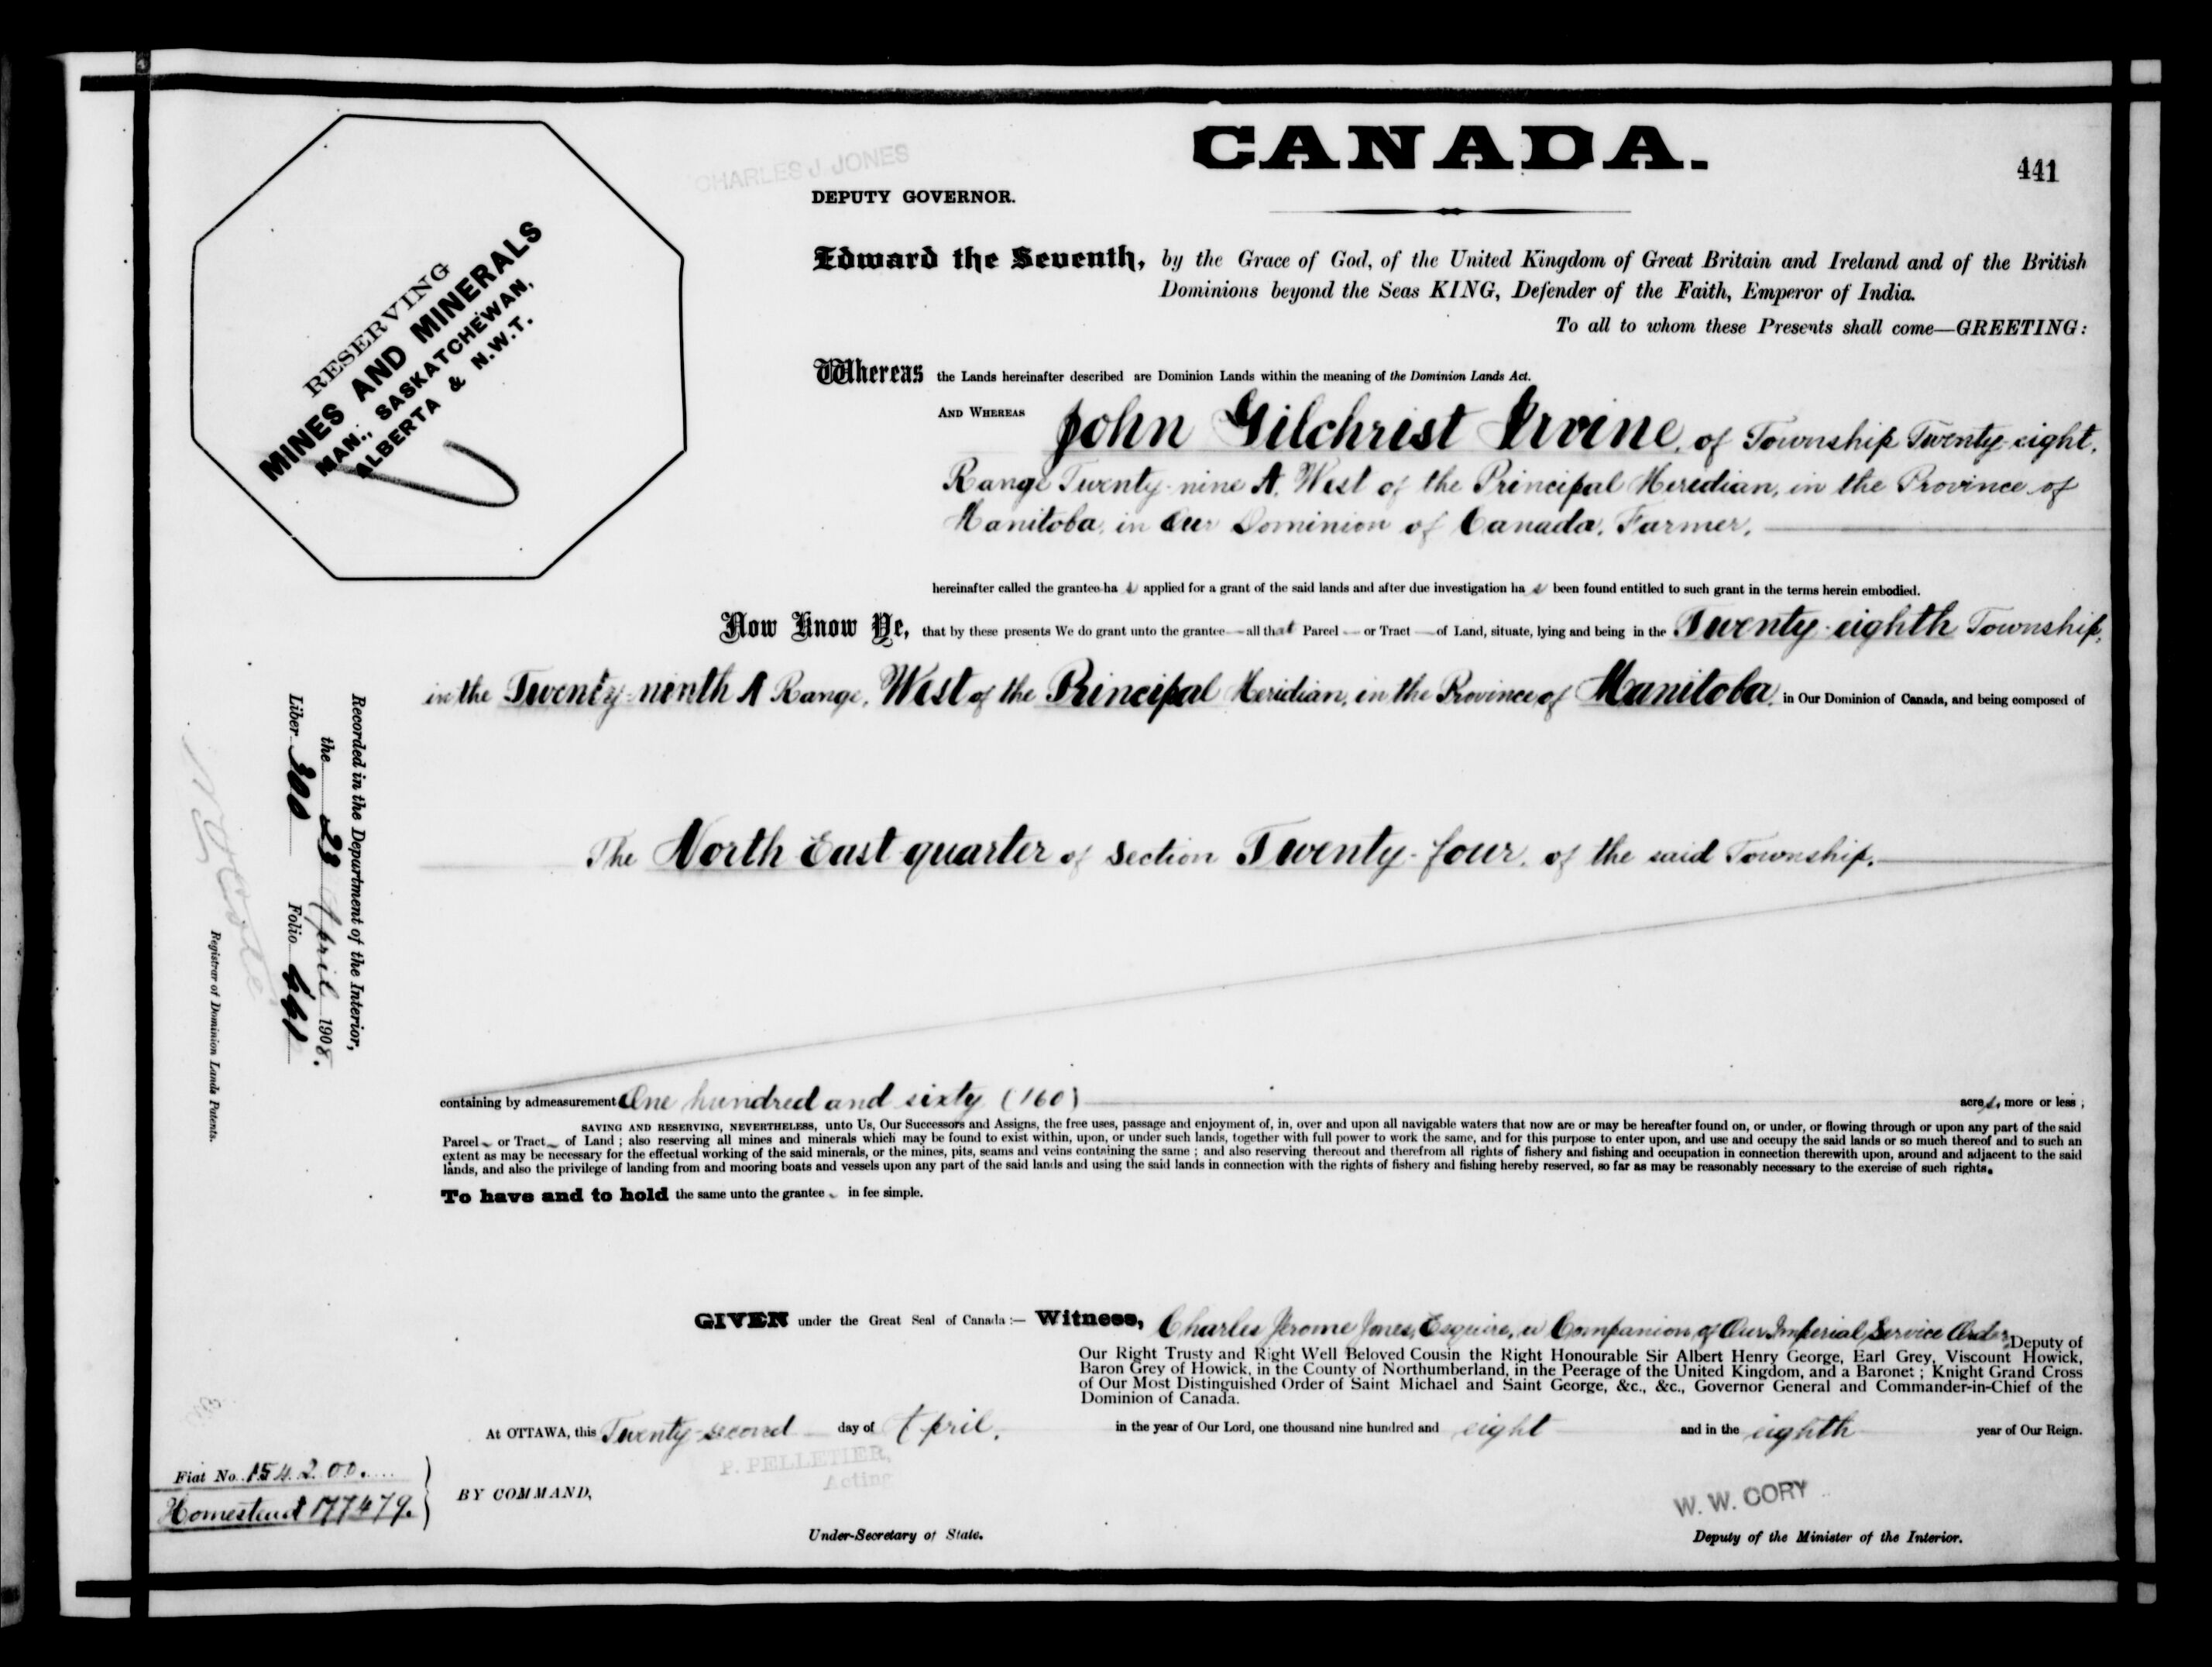 CANADA.
441
CHARLES J JONES
DEPUTY GOVERNOR.
RESERVING
MINES AND MINERALS
MAN., SASKATCHEWAN,
ALBERTA & N.W.T.
Edward the Seventh, by the Grace of God, of the United Kingdom of Great Britain and Ireland and of the British
Dominions beyond the Seas KING, Defender of the Faith, Emperor of India.
To all to whom these Presents shall come—GREETING:
Whereas the Lands hereinafter described are Dominion Lands within the meaning of the Dominion Lands Act.
AND WHEREAS John Gilchrist Irvine, of Township Twenty-eight,
Range Twenty-nine A. West of the Principal Meridian, in the Province of
Manitoba, in Our Dominion of Canada, Farmer,
hereinafter called the grantee ha s applied for a grant of the said lands and after due investigation ha s been found entitled to such grant in the terms herein embodied.
Now Know Ye, that by these presents We do grant unto the grantee all that Parcel or Tract of Land, situate, lying and being in the Twenty-eighth Township,
in the Twenty-ninth A Range, West of the Principal Meridian, in the Province of Manitoba, in Our Dominion of Canada, and being composed of
The North East quarter of section Twenty-four, of the said Township.
Recorded in the Department of the Interior,
the 23 April 1908.
Liber 300 Folio 441
Registrar of Dominion Lands Patents.
containing by admeasurement One hundred and sixty (160) acres, more or less;
SAVING AND RESERVING, NEVERTHELESS, unto Us, Our Successors and Assigns, the free uses, passage and enjoyment of, in, over and upon all navigable waters that now are or may be hereafter found on, or under, or flowing through or upon any part of the said
Parcel or Tract of Land; also reserving all mines and minerals which may be found to exist within, upon, or under such lands, together with full power to work the same, and for this purpose to enter upon, and use and occupy the said lands or so much thereof and to such an
extent as may be necessary for the effectual working of the said minerals, or the mines, pits, seams and veins containing the same; and also reserving thereout and therefrom all rights of fishery and fishing and occupation in connection therewith upon, around and adjacent to the said
lands, and also the privilege of landing from and mooring boats and vessels upon any part of the said lands and using the said lands in connection with the rights of fishery and fishing hereby reserved, so far as may be reasonably necessary to the exercise of such rights.
To have and to hold the same unto the grantee in fee simple.
GIVEN under the Great Seal of Canada:— Witness, Charles Jerome Jones, Esquire, a Companion of Our Imperial Service Order, Deputy of
Our Right Trusty and Right Well Beloved Cousin the Right Honourable Sir Albert Henry George, Earl Grey, Viscount Howick,
Baron Grey of Howick, in the County of Northumberland, in the Peerage of the United Kingdom, and a Baronet; Knight Grand Cross
of Our Most Distinguished Order of Saint Michael and Saint George, &c., &c., Governor General and Commander-in-Chief of the
Dominion of Canada.
At OTTAWA, this Twenty-second day of April, in the year of Our Lord, one thousand nine hundred and eight and in the eighth year of Our Reign.
P. PELLETIER,
Acting
Fiat No. 154200.
Homestead 177479.
BY COMMAND,
W. W. CORY
Under-Secretary of State.
Deputy of the Minister of the Interior.